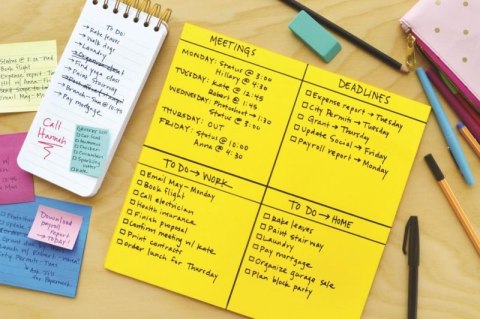 MEETINGS
MONDAY: Status @ 3:00
Hillary @ 4:30
TUESDAY: Kate @ 12:45
Robert @ 1:45
WEDNESDAY: @ 1:30
Status @ 3:00
THURSDAY: OUT
FRIDAY:
Status @ 10:00
Anna @ 4:30
DEADLINES
Expense report → Tuesday
City Permit → Tuesday
Grant → Thursday
Update Social → Friday
Payroll report → Monday
TO DO → WORK
Email May - Monday
Book flight
Call electrician
Health insurance
Finish proposal
Confirm meeting w/ Kate
Print contracts
Order lunch for Thursday
TO DO → HOME
Rake leaves
Paint stairway
Laundry
Pay mortgage
Organize garage sale
Plan block party
TO DO:
→ Rake leaves
→ Walk dogs
→ Laundry
→ Find yoga class
→ Paint Stairway
→ Pay mortgage
Call
Hannah
Download
payroll
report
TODAY!